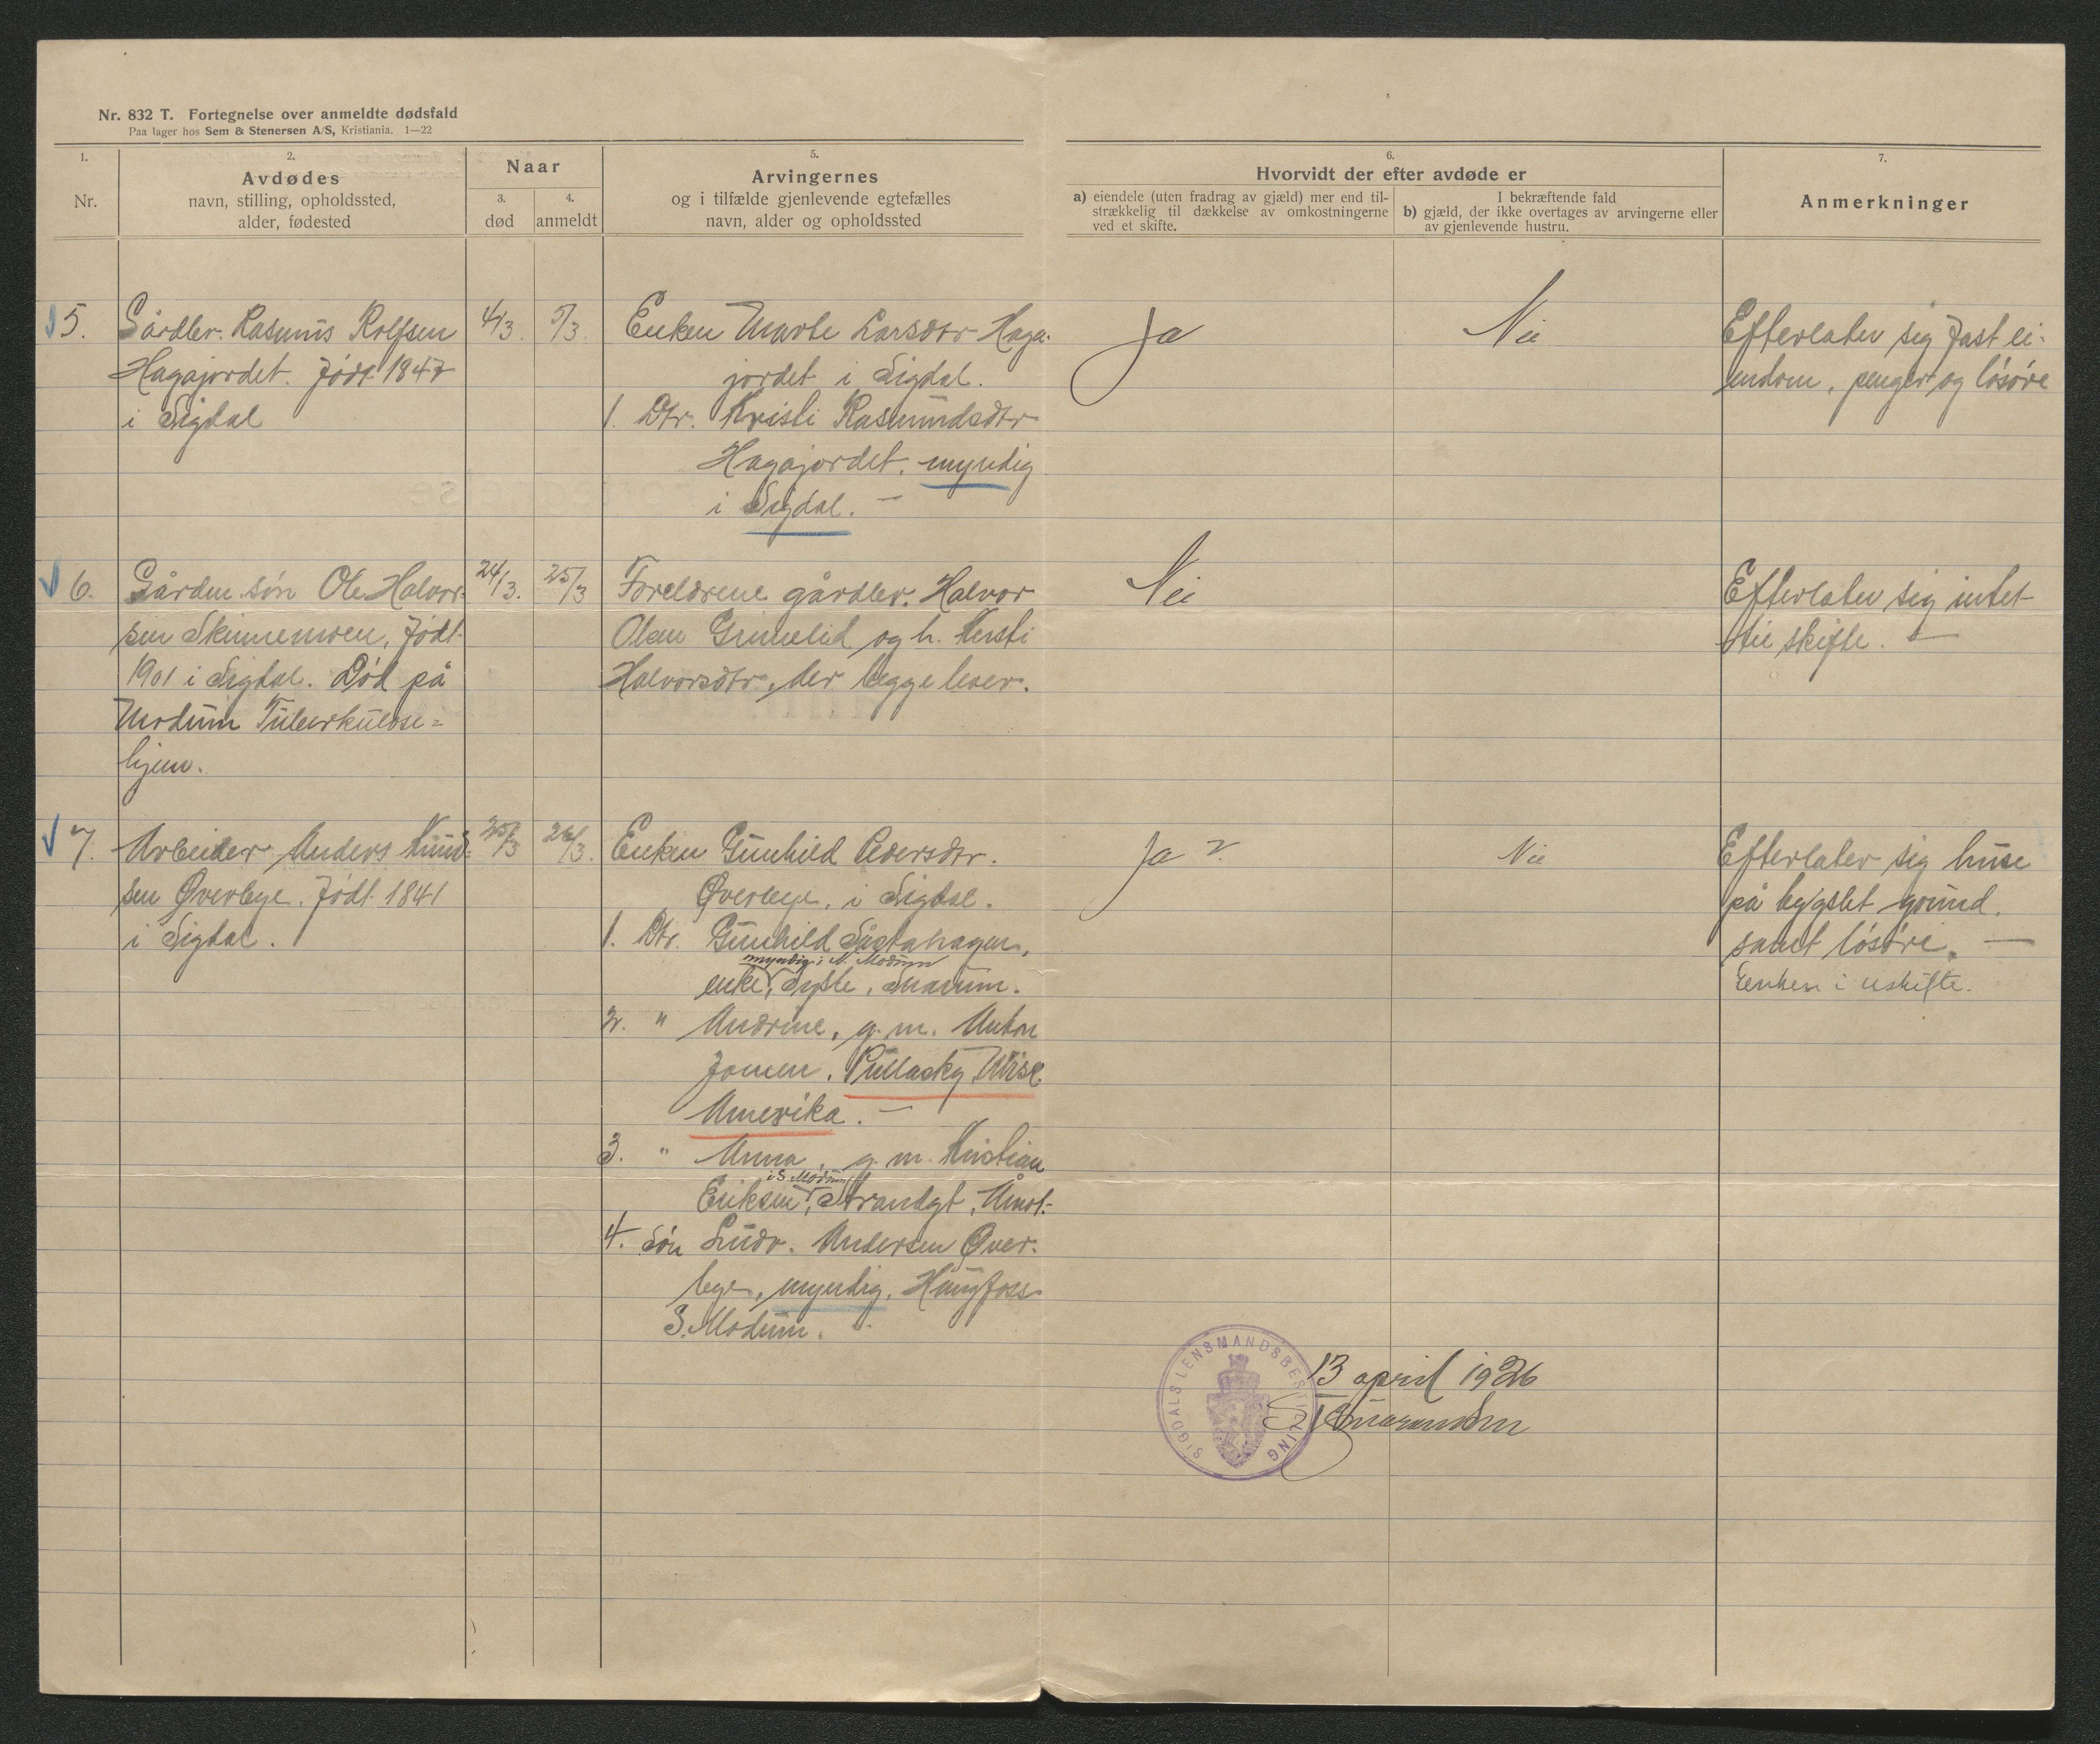 Nr. 832 T. Fortegnelse over anmeldte dødsfald
Paa lager hos Sem & Stenersen A/S, Kristiania. 1—22
1.
Nr.
2.
Avdødes
navn, stilling, opholdssted,
alder, fødested
Naar
3.
død
4.
anmeldt
5.
Arvingernes
og i tilfælde gjenlevende egtefælles
navn, alder og opholdssted
6.
Hvorvidt der efter avdøde er
a) eiendele (uten fradrag av gjæld) mer end til-
strækkelig til dækkelse av omkostningerne
ved et skifte.
I bekræftende fald
b) gjæld, der ikke overtages av arvingerne eller
av gjenlevende hustru.
7.
Anmerkninger
5.
Gårdbr. Rasmus Rolfsen
Hagajordet. Født 1847
i Sigdal
4/3.
5/3.
Enken Marte Larsdtr Haga-
jordet i Sigdal.
1. Dtr. Kristi Rasmundsdtr
Hagajordet, myndig
i Sigdal. —
Ja
Nei
Efterlater sig fast ei-
endom, penger og løsøre
6.
Gårdm. søn Ole Halvor-
sen Skinnemoen, født
1901 i Sigdal. Død på
Modum Tuberkulose-
hjem.
24/3.
25/3
Foreldrene gårdbr. Halvor
Olsen Grimelid og h. Kersti
Halvorsdtr, der begge lever.
Nei
Efterlater sig intet
til skifte. —
7.
Arbeider Anders Knud-
sen Øverbye. Født 1841
i Sigdal.
25/3
26/3.
Enken Gunhild Pedersdtr.
Øverbye, i Sigdal.
1. Dtr. Gunhild
myndig i N. Modum
enke, Sysle, Snarum.
2. " Andrine, g. m. Anton
Jonsen, Pullasky Wisc.
Amerika. —
3. " Anna, g. m. Kristian
i S. Modum
Eriksen, Strandgt, Åmot.
4. Søn Ludv. Andersen Øver-
bye, myndig,
S. Modum. —
Ja
Nei
Efterlater sig huse
på bygslet grund,
samt løsøre. —
Enken i uskifte.
SIGDALS LENSMANDSBESTILLING
13 april 1926